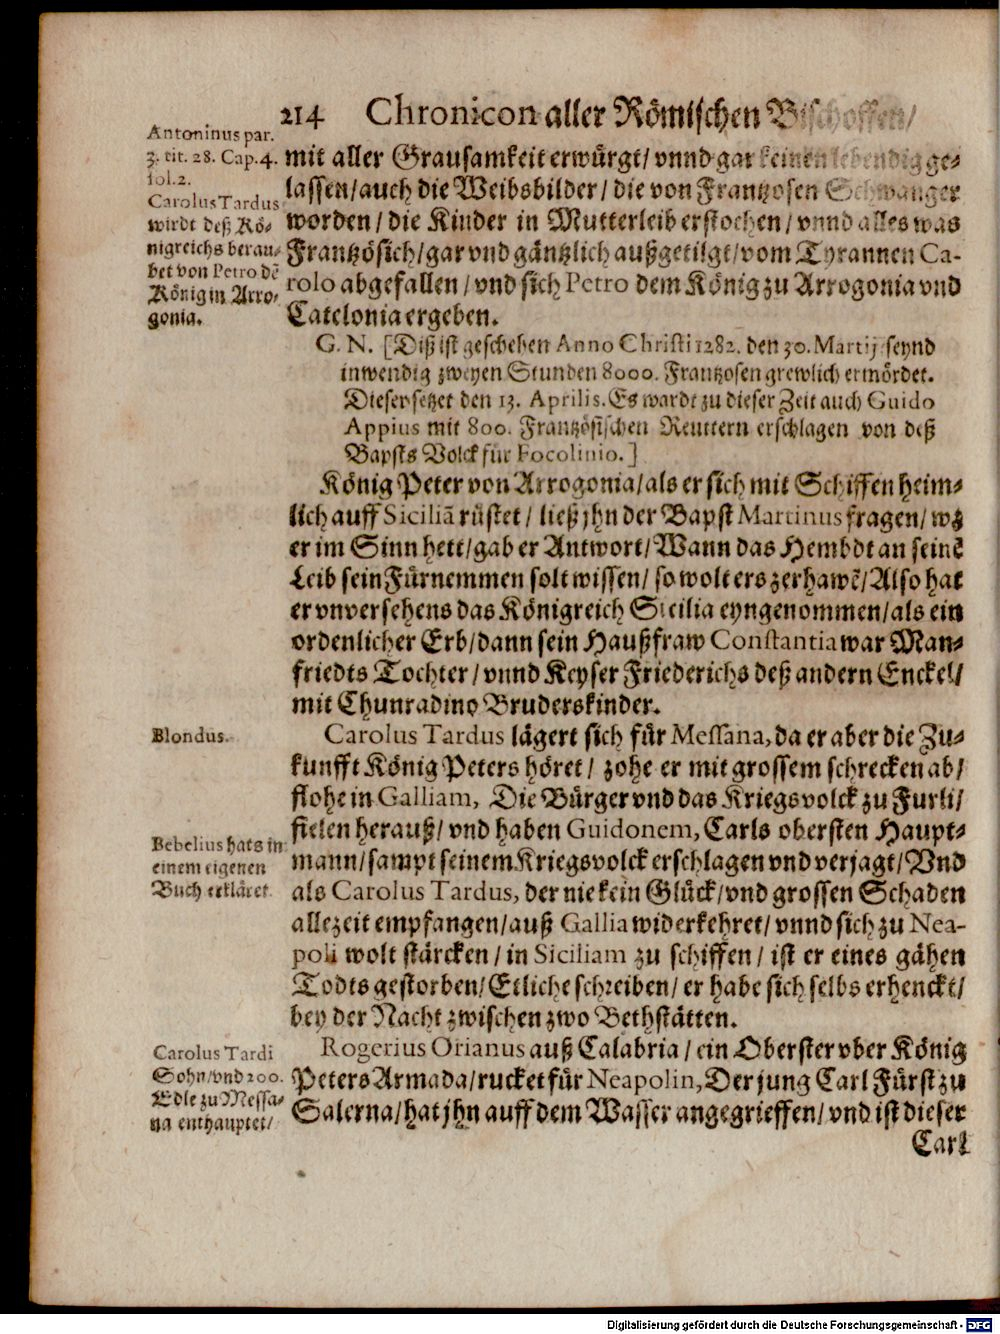 214 Chronicon aller Römischen Bischoffen/
Antoninus par.
3. tit. 28. Cap. 4.
fol. 2.
Carolus Tardus
wirdt deß Kö-
nigreichs berau-
bet von Petro dē
König in Arro-
gonia.
mit aller Grausamkeit erwürgt/ vnnd gar keinen lebendig ge-
lassen/ auch die Weibsbilder/ die von Frantzosen Schwanger
worden/ die Kinder in Mutterleib erstochen/ vnnd alles was
Frantzösich/ gar vnd gäntzlich außgetilgt/ vom Tyrannen Ca-
rolo abgefallen/ vnd sich Petro dem König zu Arrogonia vnd
Catelonia ergeben.
G. N. [Diß ist geschehen Anno Christi 1282. den 30. Martij seynd
inwendig zweyen Stunden 8000. Frantzosen grewlich ermördet.
Dieser setzet den 13. Aprilis. Es wardt zu dieser Zeit auch Guido
Appius mit 800. Frantzösischen Reuttern erschlagen von deß
Bapsts Volck für Focolinio.]
König Peter von Arrogonia/ als er sich mit Schiffen heim-
lich auff Siciliā rüstet/ ließ jhn der Bapst Martinus fragen/ wz
er im Sinn hett/ gab er Antwort/ Wann das Hembdt an seinē
Leib sein Fürnemmen solt wissen/ so wolt ers zerhawē/ Also hat
er vnversehens das Königreich Sicilia eyngenommen/ als ein
ordenlicher Erb/ dann sein Haußfraw Constantia war Man-
friedts Tochter/ vnnd Keyser Friederichs deß andern Enckel/
mit Chunradino Bruderskinder.
Blondus.
Carolus Tardus lägert sich für Messana, da er aber die Zu-
kunfft König Peters höret/ zohe er mit grossem schrecken ab/
flohe in Galliam, Die Bürger vnd das Kriegsvolck zu Furli/
fielen herauß/ vnd haben Guidonem, Carls obersten Haupt-
Bebelius hats in
einem eigenen
Buch erkläret.
mann/ sampt seinem Kriegsvolck erschlagen vnd verjagt/ Vnd
als Carolus Tardus, der nie kein Glück/ vnd grossen Schaden
allezeit empfangen/ auß Gallia widerkehret/ vnnd sich zu Nea-
poli wolt stärcken/ in Siciliam zu schiffen/ ist er eines gähen
Todts gestorben/ Etliche schreiben/ er habe sich selbs erhenckt/
bey der Nacht zwischen zwo Bethstätten.
Carolus Tardi
Sohn/ vnd 200.
Edle zu Messa-
na enthauptet/
Rogerius Orianus auß Calabria/ ein Oberster vber König
Peters Armada/ rucket für Neapolin, Der jung Carl Fürst zu
Salerna/ hat jhn auff dem Wasser angegrieffen/ vnd ist dieser
Carl
Digitalisierung gefördert durch die Deutsche Forschungsgemeinschaft - DFG